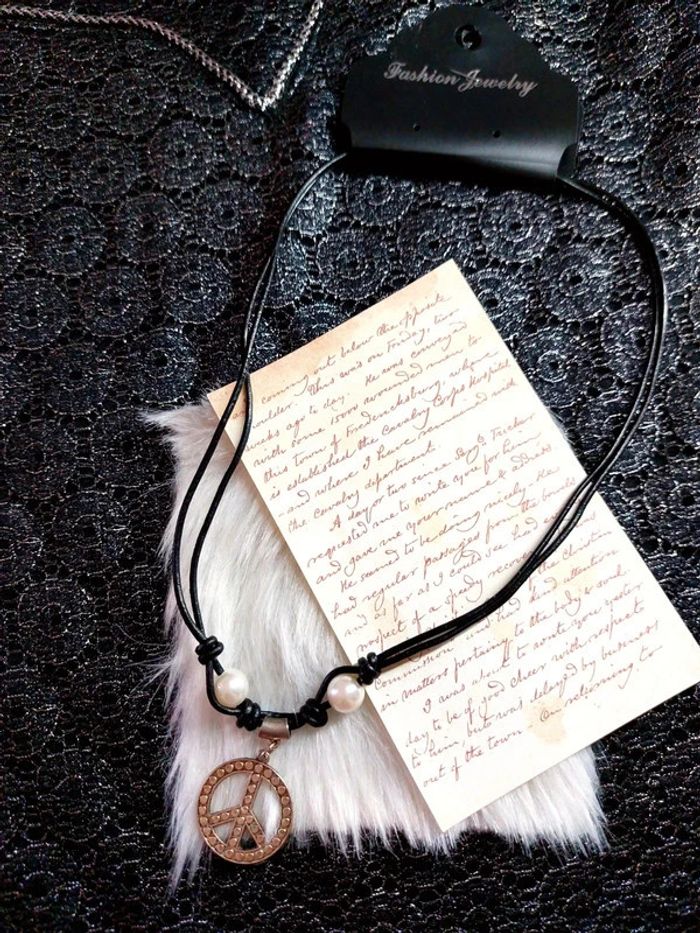 Fashion Jewelry
coming out below the opposite
shoulder. This was on Friday, two
weeks ago to day. He was conveyed
with some 15000 wounded men to
this town of Fredericksburg, where
is established the Cavalry Corps Hospital
and where I have remained with
the Cavalry department.
A day or two since Bro. Teicher
requested me to write you for him
and gave me your name & address.
He seemed to be doing nicely. He
had regular passages from the bowels
and as far as I could see had every
prospect of a speedy recovery
of the Christian
Commission and had kind attention
in matters pertaining to the body & soul.
I was about to write you yester
day to be of good cheer with respect
to him, but was delayed by business
out of the town. On returning to